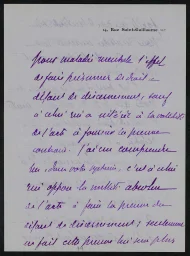 14, Rue Saint-Guillaume
maladie mentale l'effet
de faire présumer le défaut
défaut de discernement, sauf
à celui qui a intérêt à la validité
de l'acte à fournir la preuve
contraire. J'ai cru comprendre
que dans votre système, c'est à celui
qui oppose la nullité absolue
de l'acte à faire la preuve du
défaut de discernement ; seulement
cette preuve plus